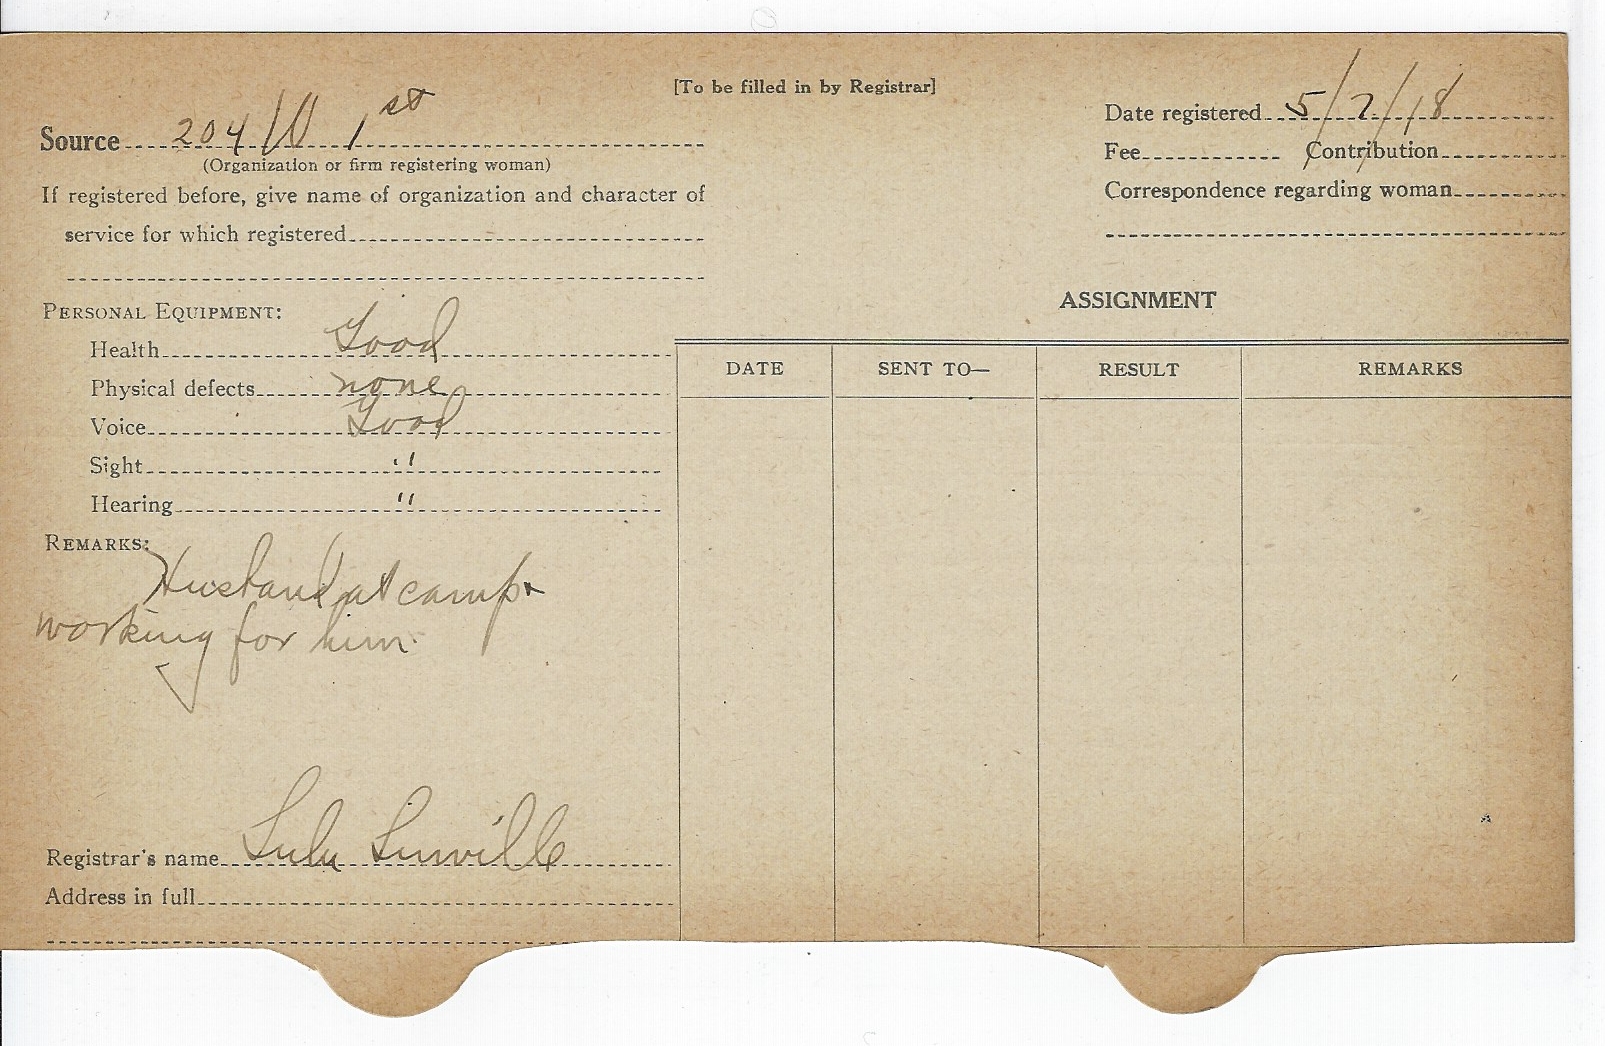 [To be filled in by Registrar]
Source 204 W 1st
(Organization or firm registering woman)
If registered before, give name of organization and character of
service for which registered
Date registered 5/7/18
Fee Contribution
Correspondence regarding woman
PERSONAL EQUIPMENT:
Health Good
Physical defects none
Voice Good
Sight "
Hearing "
REMARKS:
Husband at camp
working for him.
Registrar's name Lulu Linville
Address in full
ASSIGNMENT
DATE SENT TO— RESULT REMARKS